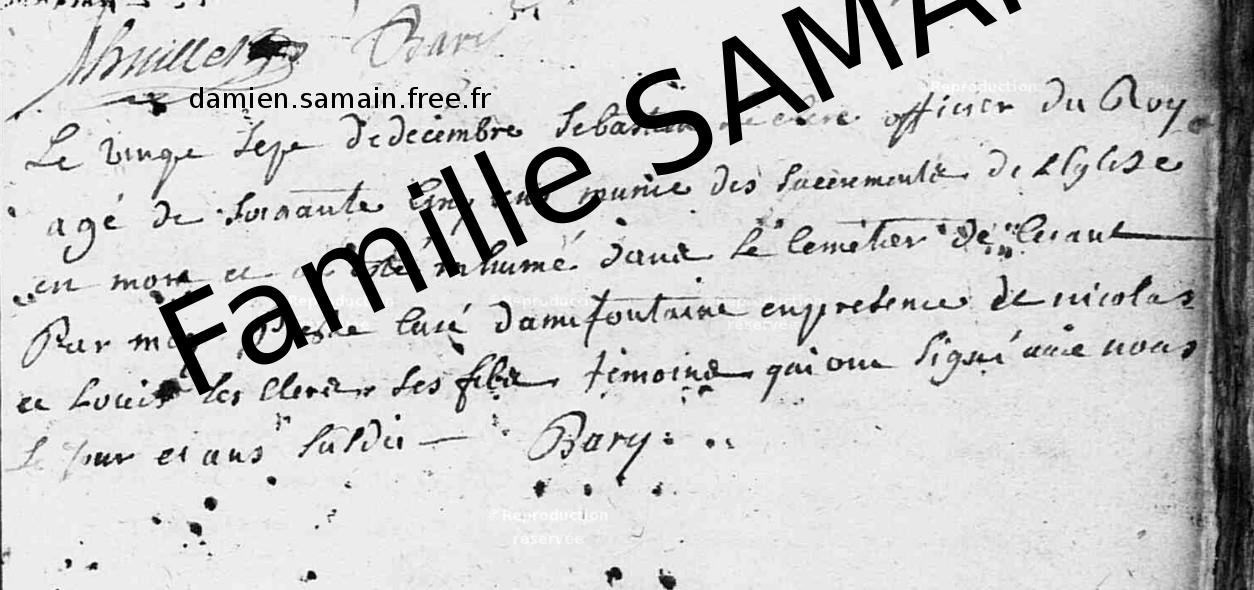 Bary
damien.samain.free.fr
Famille SAMAI
©Reproduction
Le vingt sept de decembre Sebastien Le clerc officier du Roy
agé de soixante cinq ans munie des sacrements de L'Eglise
en mort et a été inhumé dans le cemetier de
Par moy curé damfontaine en presence de nicolas
et Louis les Clercs ses fils temoins qui ont signé avec nous
Le jour et ans susdit — Bary
©Reproduction
réservée
©Reproduction
©Reproduction
réservée
©Reproduction
réservée